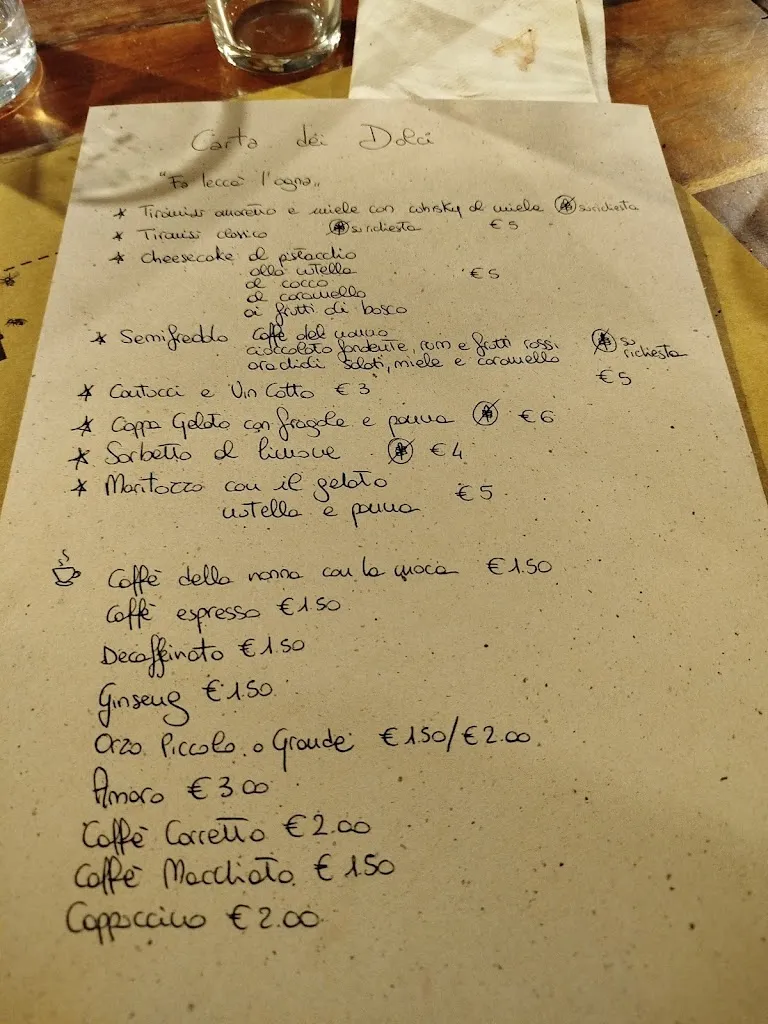 Carta dei Dolci
"Fa leccà l'ogna"
* Tiramisù amaretto e miele con whisky al miele su richiesta
* Tiramisù classico su richiesta € 5
* Cheesecake al pistacchio
alla nutella € 5
al cocco
al caramello
ai frutti di bosco
* Semifreddo Caffè del nonno
cioccolato fondente, rum e frutti rossi su richiesta
arachidi salati, miele e caramello € 5
* Cantucci e Vin Cotto € 3
* Coppa Gelato con fragole e panna € 6
* Sorbetto al limone € 4
* Maritozzo con il gelato € 5
nutella e panna
Caffè della nonna con la moca € 1.50
Caffè espresso € 1.50
Decaffeinato € 1.50
Ginseng € 1.50
Orzo Piccolo o Grande € 1.50/€ 2.00
Amaro € 3.00
Caffè Corretto € 2.00
Caffè Macchiato € 1.50
Cappuccino € 2.00